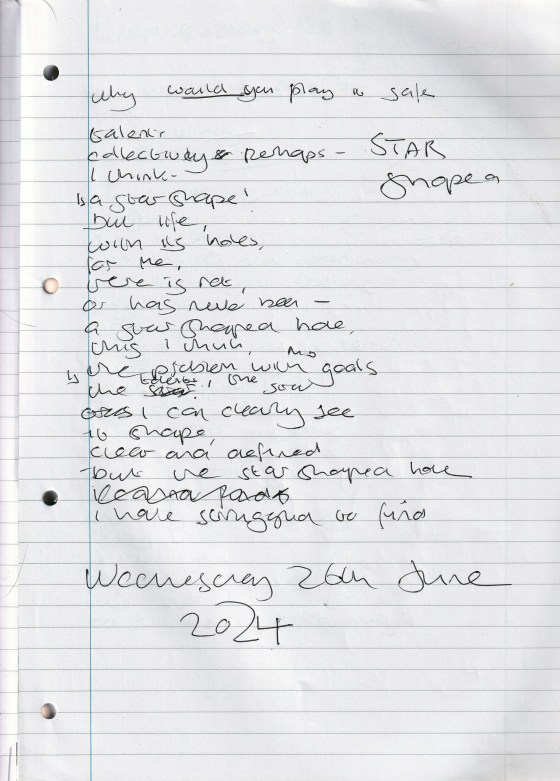 why would you play it safe
talent
collectively perhaps - STAR
shaped
I think -
is a star shape!
but life,
with its holes,
for me,
there is not,
or has never been -
a star shaped hole,
this I think,
is the problem with goals
the talent, the star
I can clearly see
its shape,
clear and defined
but the star shaped hole
I have struggled to find
Wednesday 26th June
2024